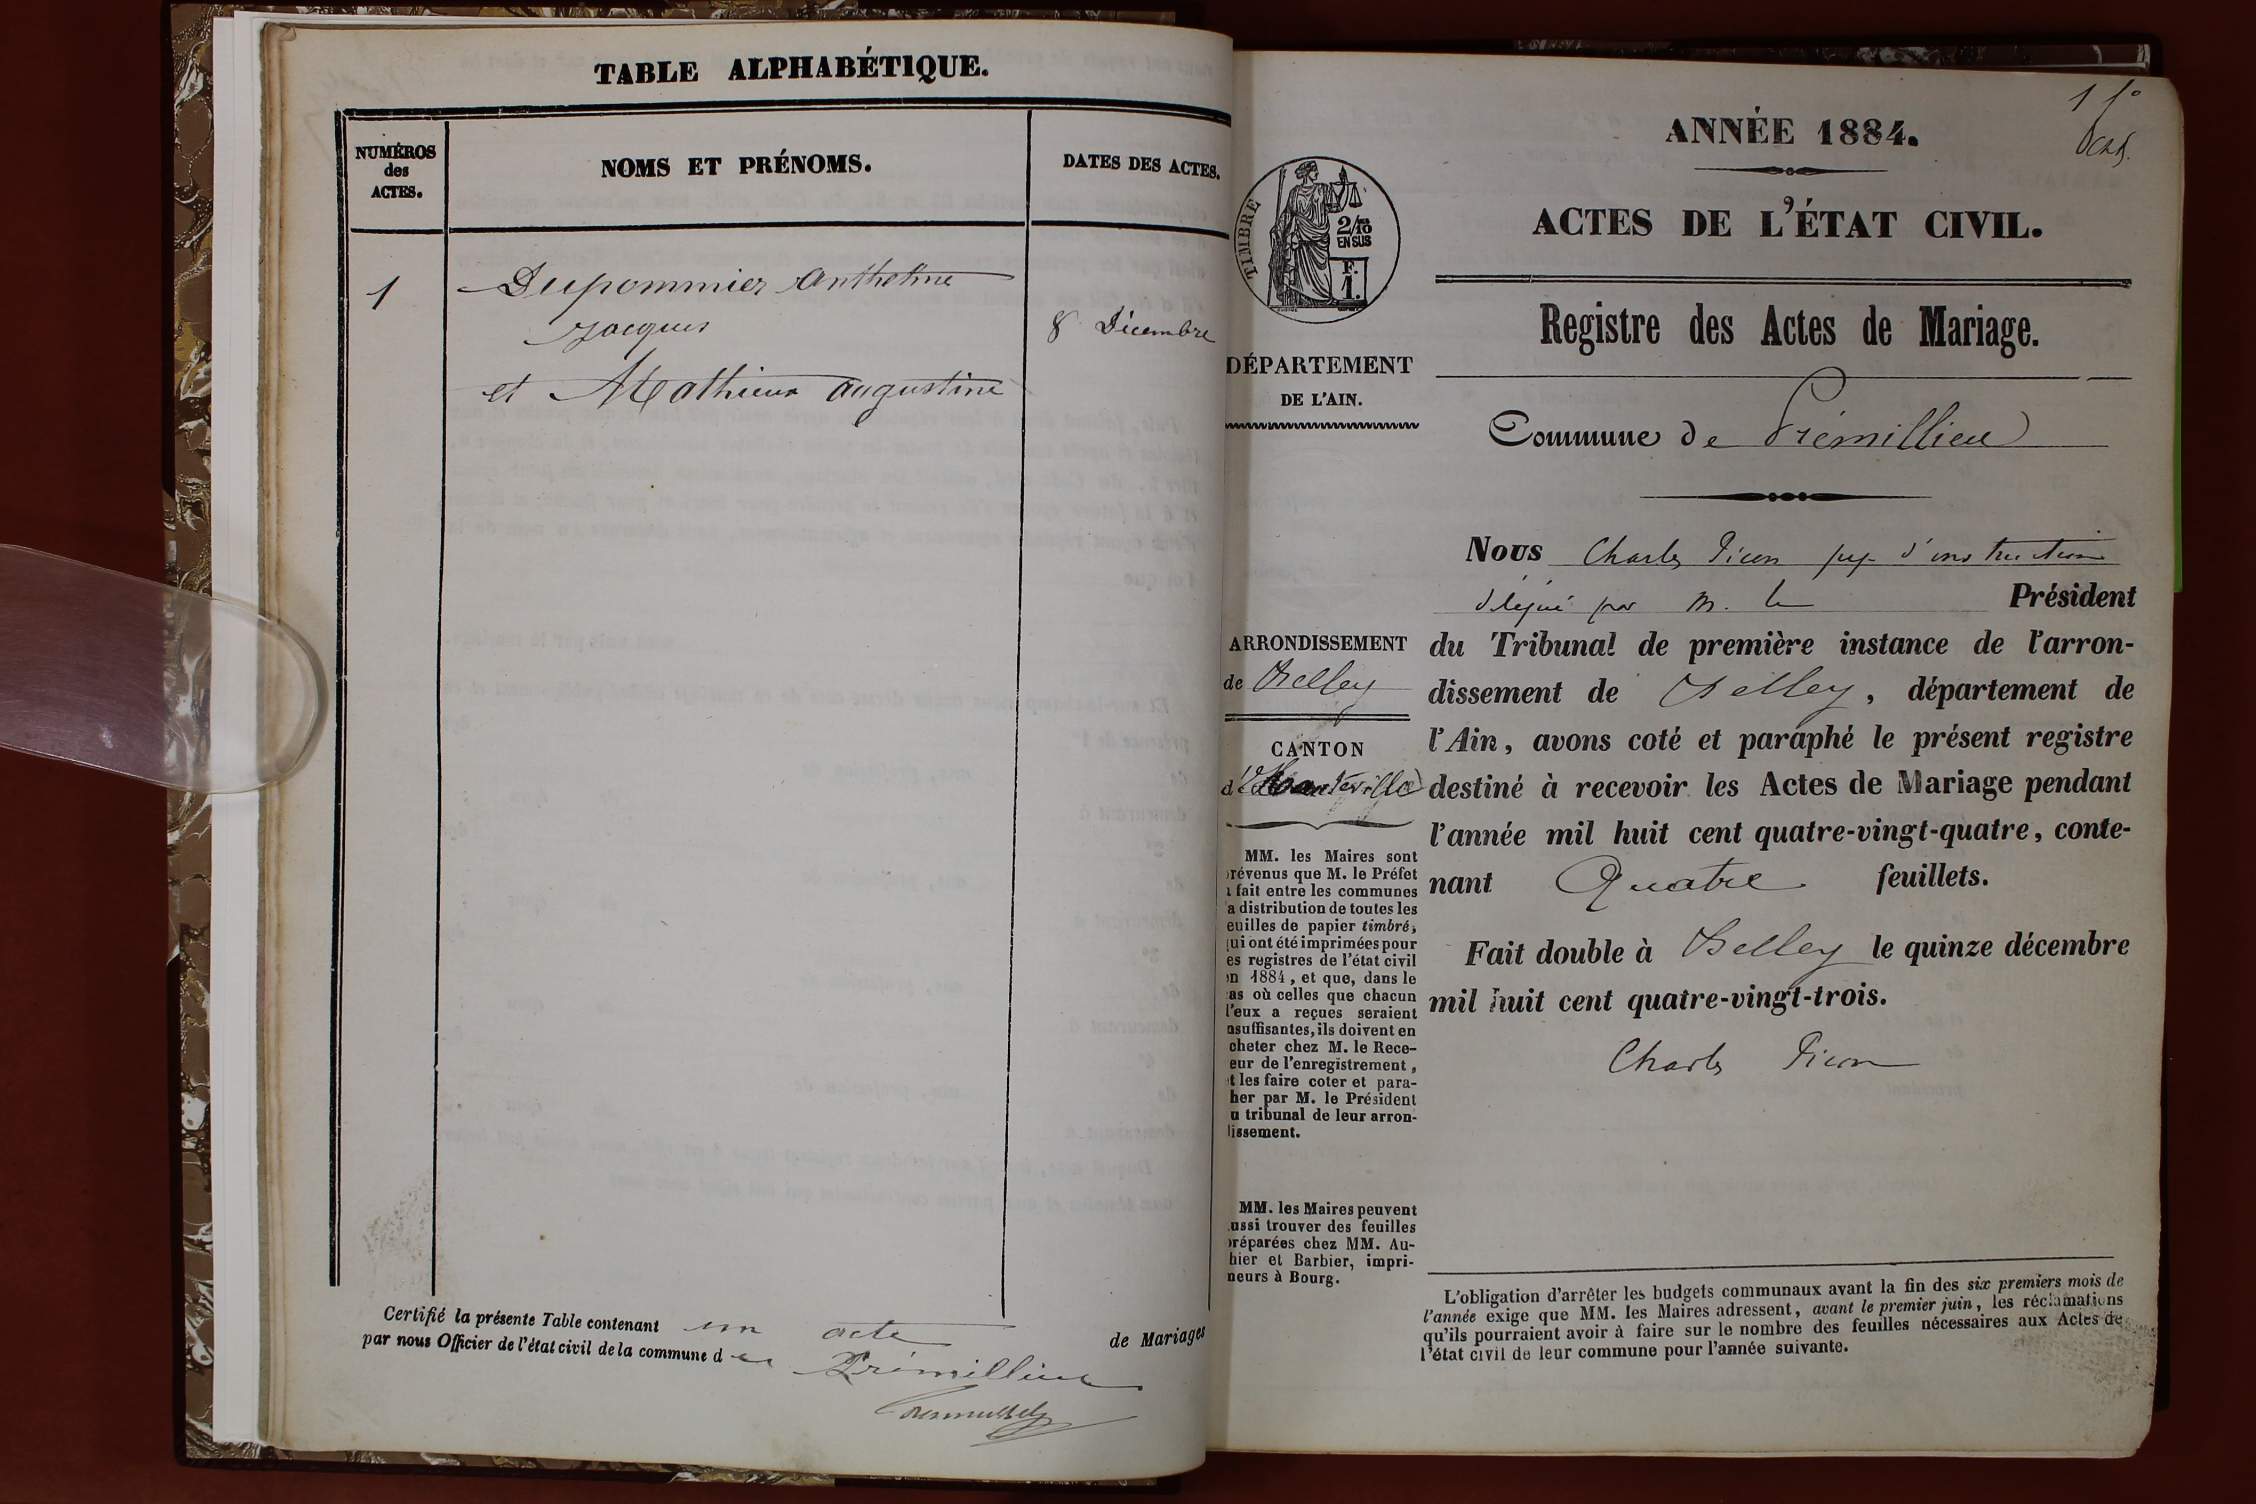 TABLE ALPHABÉTIQUE.
NUMÉROS
des
ACTES.
NOMS ET PRÉNOMS.
DATES DES ACTES.
1
Dupommier Anthelme
Jacques
8 Décembre
et Mathieux Augustine
Certifié la présente Table contenant un acte de Mariages
par nous Officier de l'état civil de la commune de Prémillieu
1 fo
ANNÉE 1884.
ACTES DE L'ÉTAT CIVIL.
TIMBRE
2/10
EN SUS
F.
1.
DÉPARTEMENT
DE L'AIN.
ARRONDISSEMENT
de Belley
CANTON
d'Hauteville
MM. les Maires sont
révenus que M. le Préfet
a fait entre les communes
la distribution de toutes les
euilles de papier timbré,
qui ont été imprimées pour
es registres de l'état civil
en 1884, et que, dans le
as où celles que chacun
d'eux a reçues seraient
nsuffisantes, ils doivent en
cheter chez M. le Rece-
eur de l'enregistrement,
et les faire coter et para-
her par M. le Président
u tribunal de leur arron-
dissement.
MM. les Maires peuvent
ussi trouver des feuilles
réparées chez MM. Au-
hier et Barbier, impri-
meurs à Bourg.
Registre des Actes de Mariage.
Commune de Prémillieu
Nous Charles Picon juge d'instruction
délégué par M. le Président
du Tribunal de première instance de l'arron-
dissement de Belley, département de
l'Ain, avons coté et paraphé le présent registre
destiné à recevoir les Actes de Mariage pendant
l'année mil huit cent quatre-vingt-quatre, conte-
nant Quatre feuillets.
Fait double à Belley le quinze décembre
mil huit cent quatre-vingt-trois.
Charles Picon
L'obligation d'arrêter les budgets communaux avant la fin des six premiers mois de
l'année exige que MM. les Maires adressent, avant le premier juin, les réclamations
qu'ils pourraient avoir à faire sur le nombre des feuilles nécessaires aux Actes de
l'état civil de leur commune pour l'année suivante.